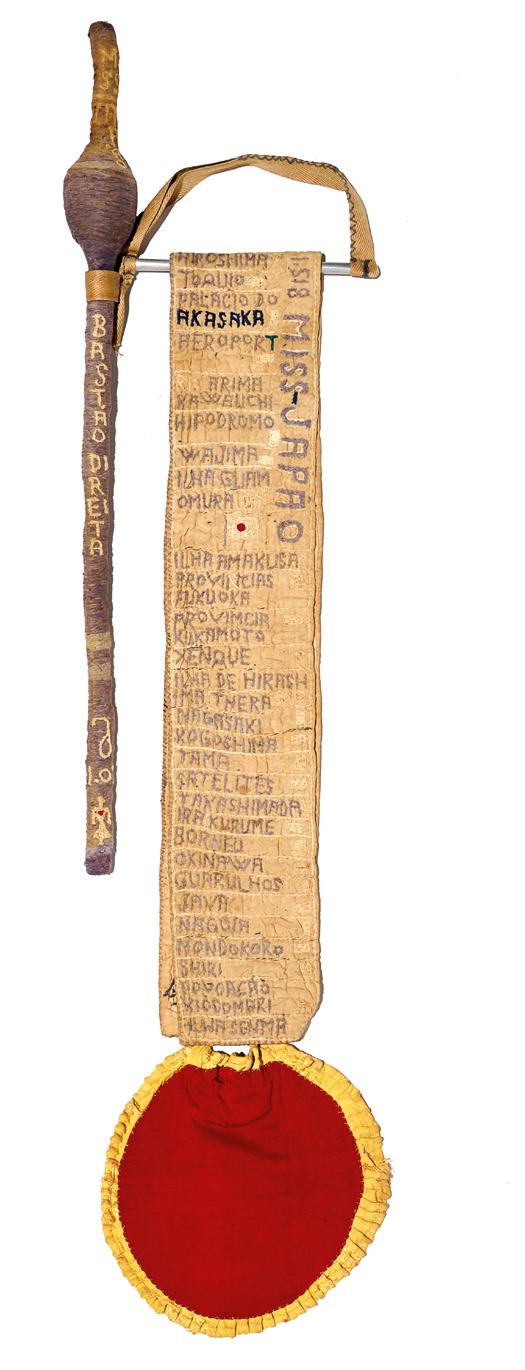 BASTAO DIREITA
1.0
HIROSHIMA
TOQUIO
PALACIO DO
AKASAKA
AEROPORT
ARIMA
KAWAUCHI
HIPODROMO
WAJIMA
ILHA GUAM
OMURA
ILHA AMAKUSA
PROVINCIAS
FUKUOKA
PROVIMCIA
KUKAMOTO
XENQUE
ILHA DE HIRASH
IMA THERA
NAGASAKI
KOGOSHIMA
TAMA
SATELITES
TAKASHIMADA
IRA KURUME
BORNEU
OKINAWA
GUARULHOS
JAVA
NAGOIA
MONDOKORO
SHIRI
POVOAÇÃO
1.S18 MISS-JAPÃO